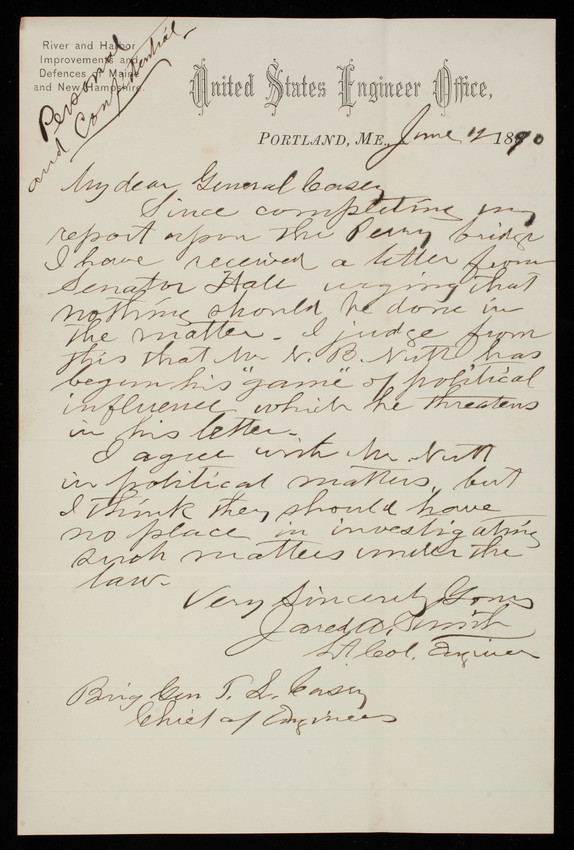 River and Harbor
Improvements and
Defences of Maine
and New Hampshire.
Personal
and Confidential
United States Engineer Office,
PORTLAND, ME., June 12 1890
My dear General Casey
Since completing my
report upon the Perry bridge
I have received a letter from
Senator Hale urging that
nothing should be done in
the matter - I judge from
this that Mr N. B. Nutt has
begun his "game" of political
influence which he threatens
in his letter -
I agree with Mr. Nutt
in political matters, but
I think they should have
no place in investigating
such matters under the
law -
Very Sincerely Yours
Jared A. Smith
Lt. Col. Engineer
Brig Gen T. L. Casey
Chief of Engineers